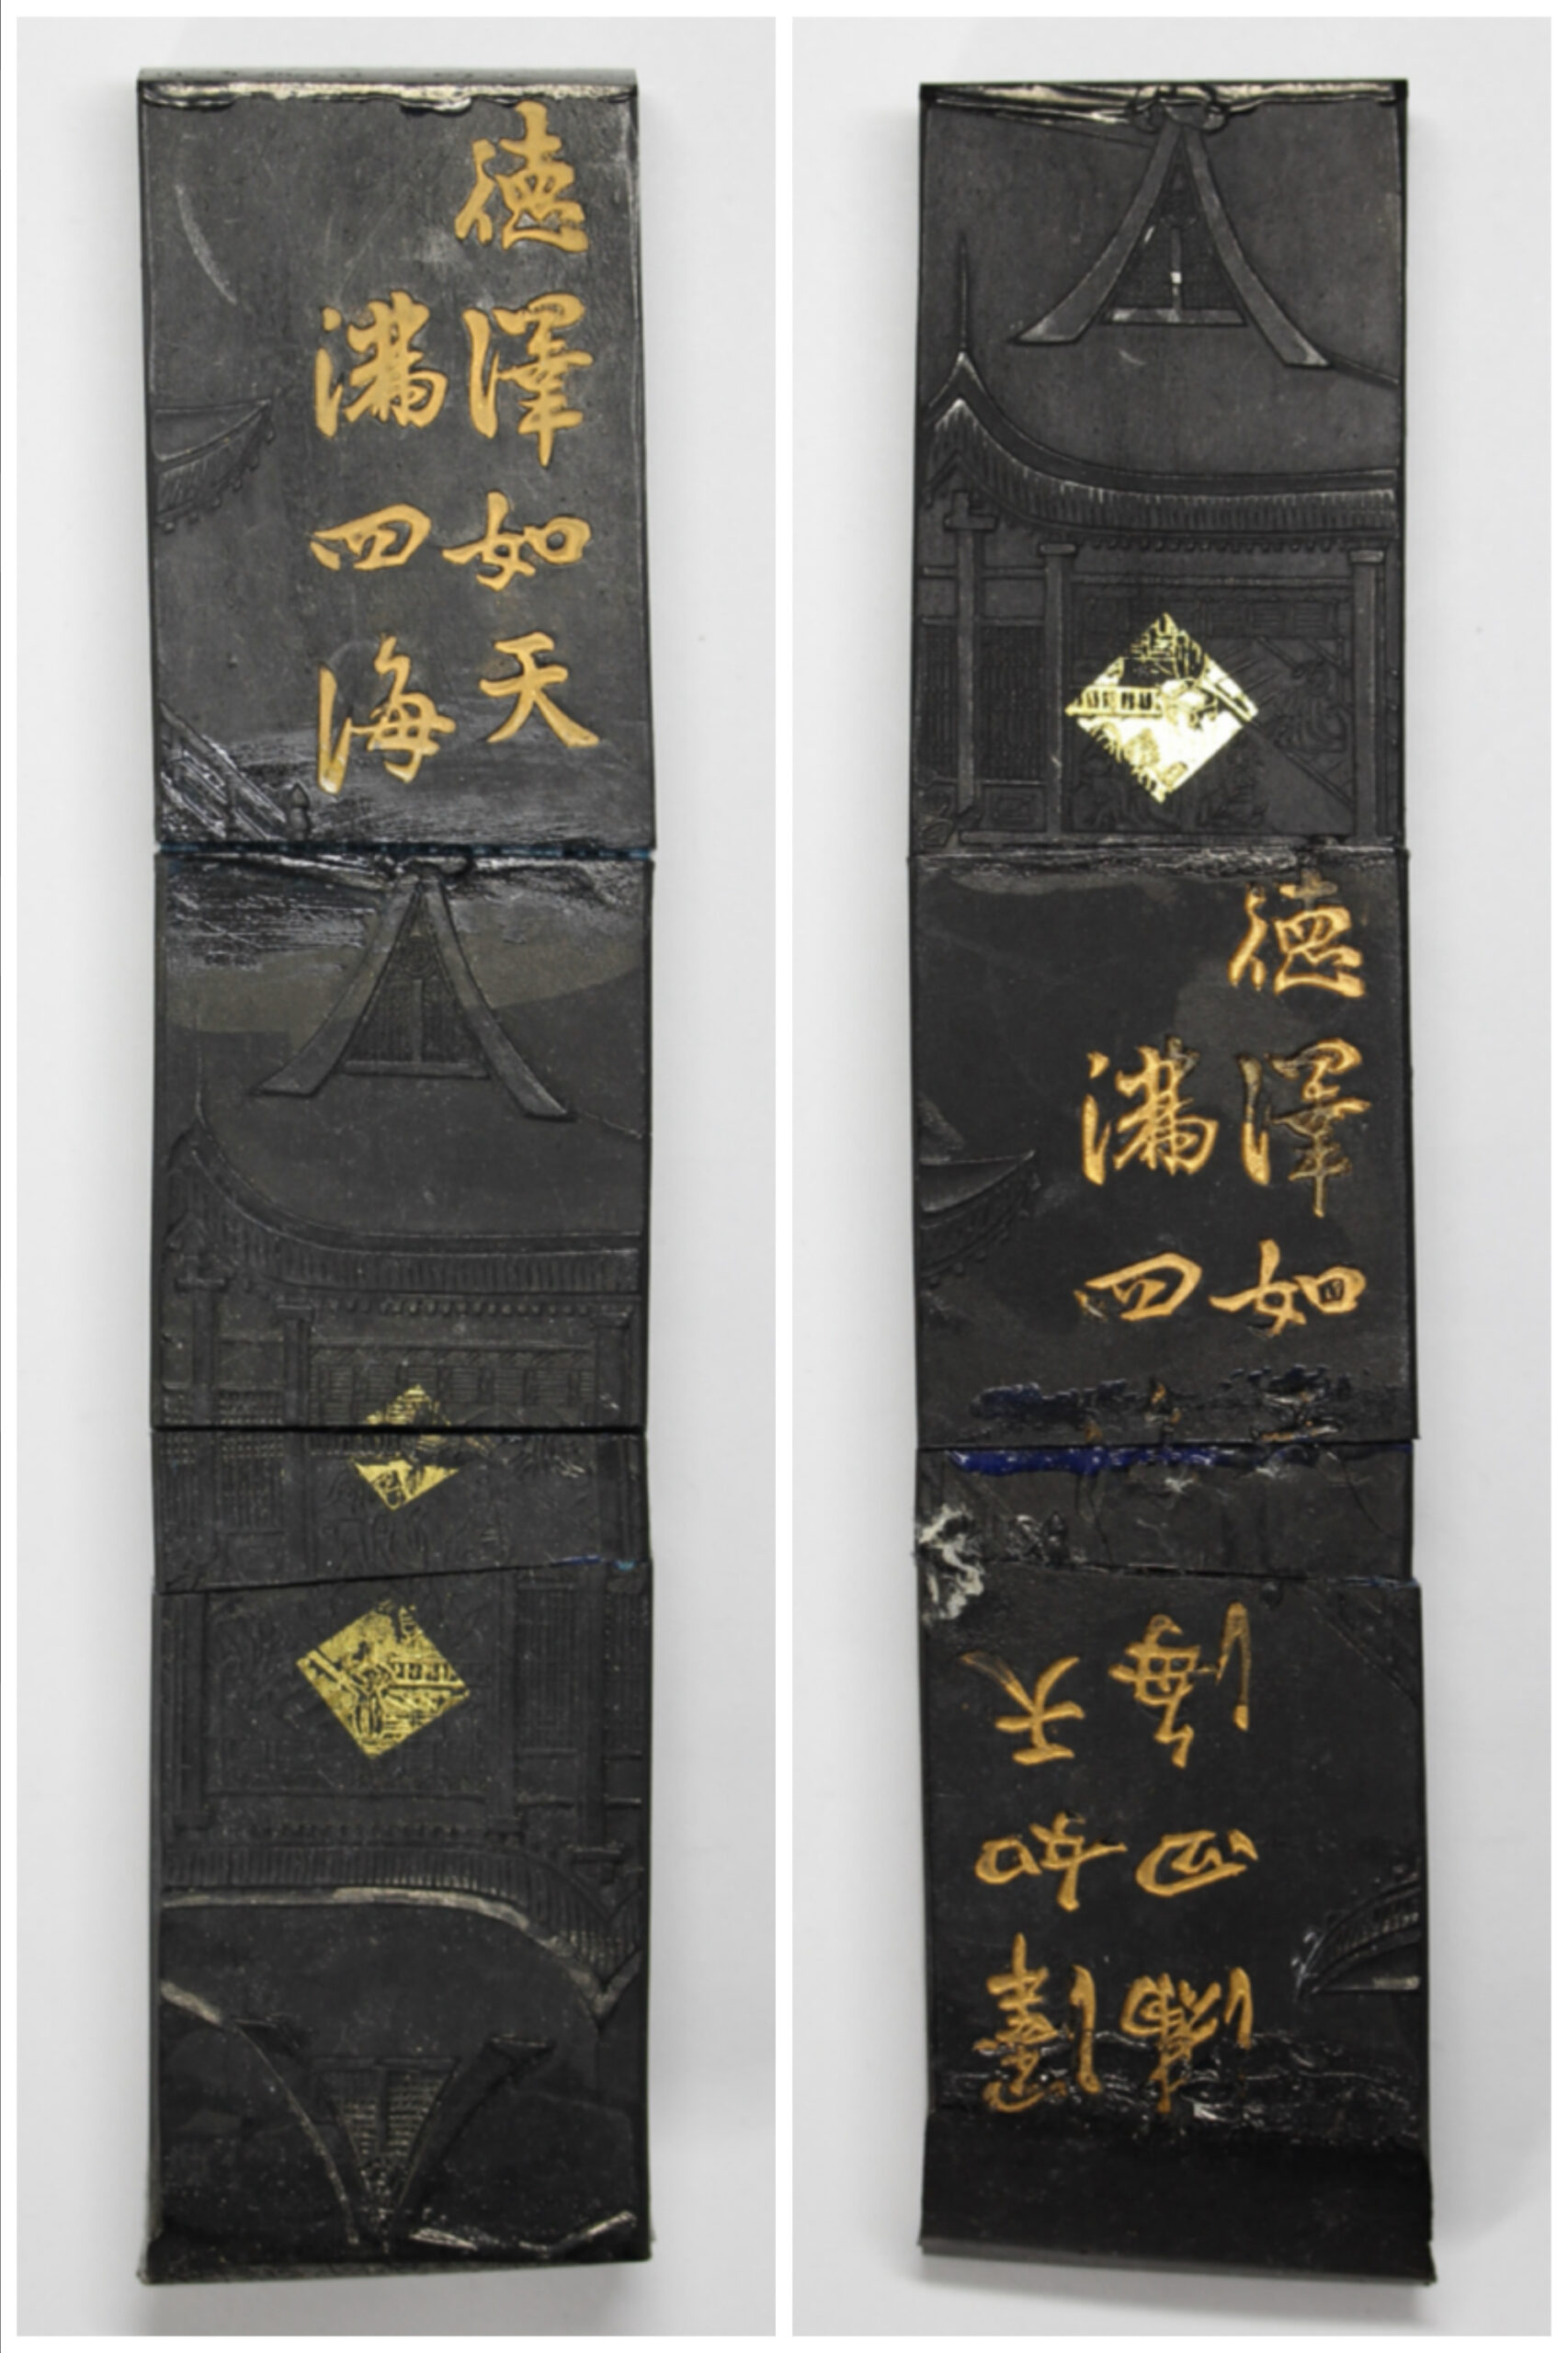 德澤如天
滿四海
德澤如
滿四
澤如天
滿四海